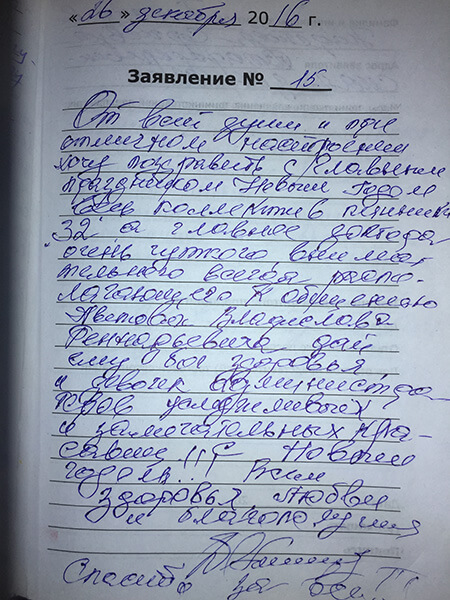 «26» декабря 2016 г.
Заявление № 15.
От всей души и при
отличном настроении
хочу поздравить с Славным
праздником Новым Годом
весь коллектив клиники
"32" а главное доктора
очень чуткого, внима-
тельного всегда распо-
лагающего к общению
Владислава
Геннадьевича дай
ему Бог здоровья
и девочек администра-
торов
и замечательных кра-
савиц!!! С Новым
годом... Всем
здоровья Любви
и благополучия
Спасибо за все!!!